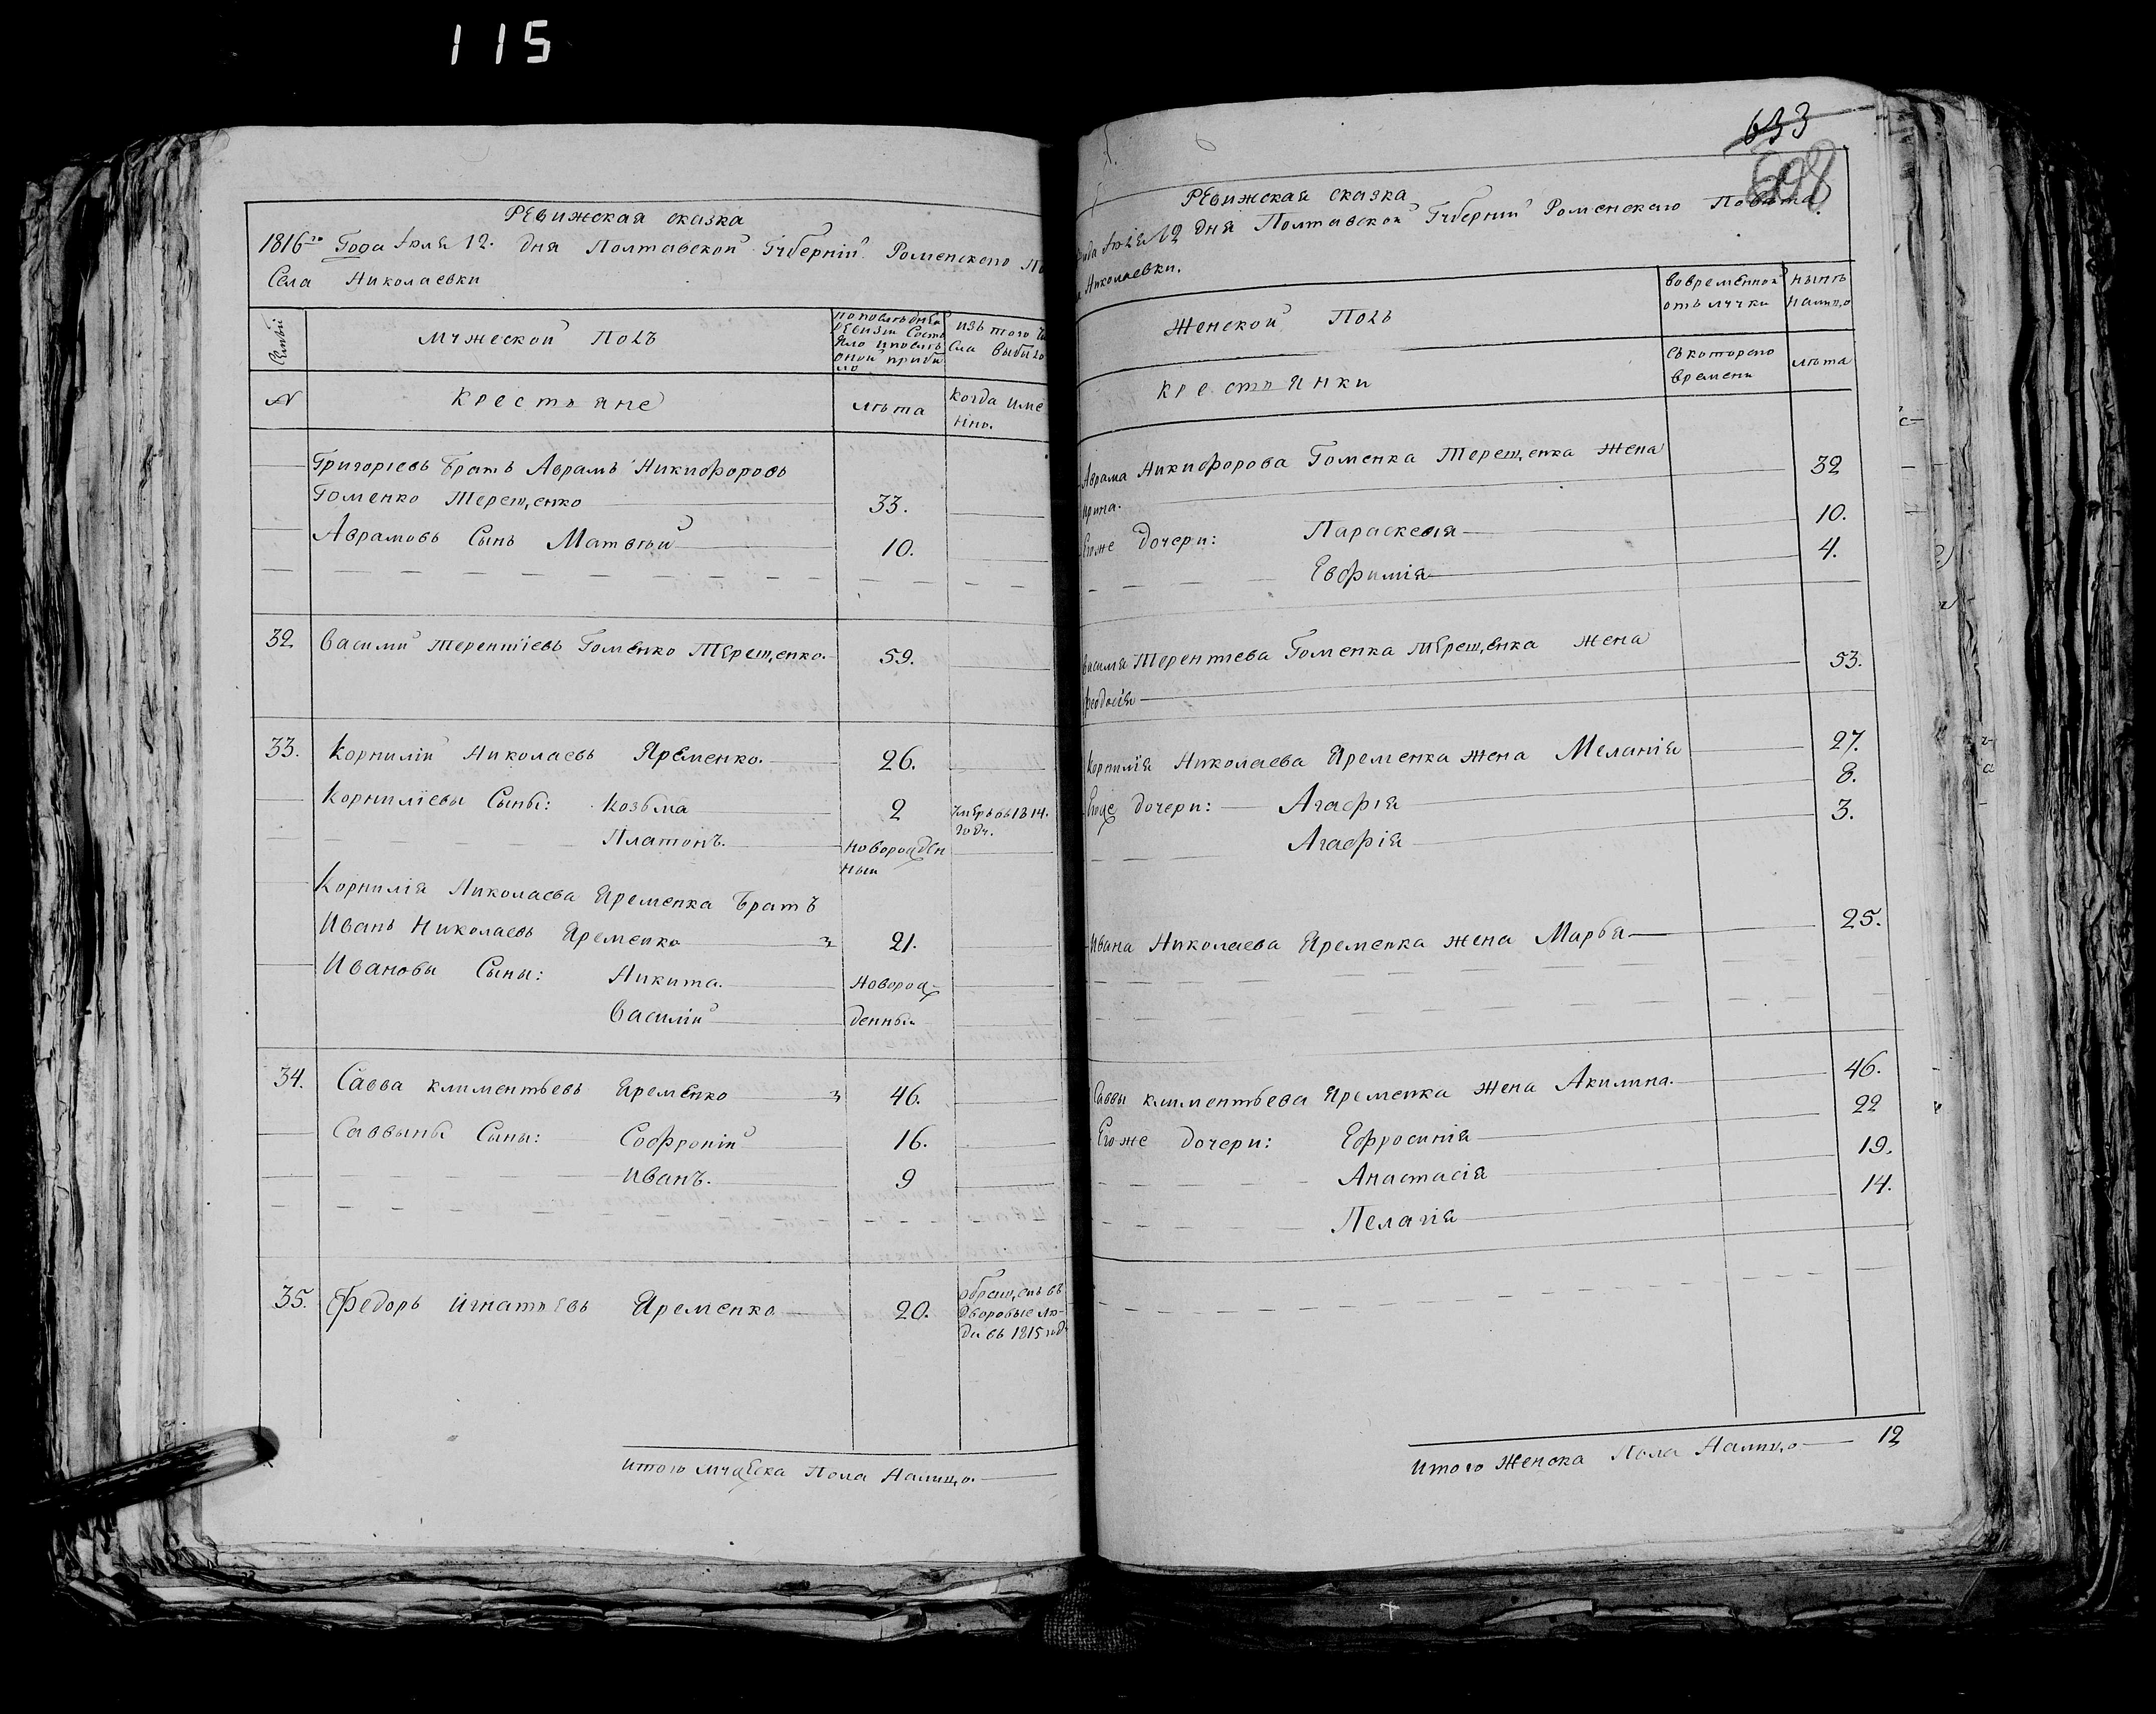 115
Ревижская сказка
1816го Года Июля 12. дня Полтавской Губерніи Роменского
Села Николаевки
мужеской Полъ
по последней
ревизіи состо
яло и после
оной прибы
ло
изъ того чи
сла выбыло
№
Крестьяне
лѣта
когда име
нно.
Григоріевъ братъ Аврамъ Никифоровъ
Гоменко Терещенко 33.
Аврамовъ Сынъ Матвѣй 10.
32 Василий Терентіевъ Гоменко Терещенко. 59.
33. Корнилій Николаевъ Яременко. 26.
Корниліевы Сыны: Козьма 2 умеръ въ 1814.
году.
Платонъ. новорожден
ный
Корнилія Николаева Яременка Братъ
Иванъ Николаевъ Яременко 21.
Ивановы Сыны: Никита. Новорож-
Василій денныи
34. Савва климентьевъ Яременко 46.
Саввины Сыны: Софроній 16.
Иванъ. 9
35. Федоръ Игнатьевъ Яременко 20. обращенъ въ
дворовые лю-
ди въ 1815 году
Итого мужеска Пола Налицо.
633
698
Ревижская сказка
Года Июля 12 дня Полтавской Губерніи Роменскаго Повѣта.
Николаевки.
Женской Полъ
во временной
отълучки
нынѣ
налицо
съ которого
времени
лѣта
крестьянки
Аврама Никифорова Гоменка Терещенка Жена
ирина. 32
Егоже дочери: Параскевія 10.
Евфимія 4.
Василія Терентіева Гоменка Терещенка жена
Феодосія 53.
Корнилія Николаева Яременка жена Меланія 27.
Егоже дочери: Агафія 8.
Агафія 3.
Ивана Николаева Яременка жена Марья 25.
Саввы климентьева Яременка жена Акилина. 46.
Егоже дочери: Ефросинія 22
Анастасія 19.
Пелагія 14.
Итого Женска Пола Налицо 12